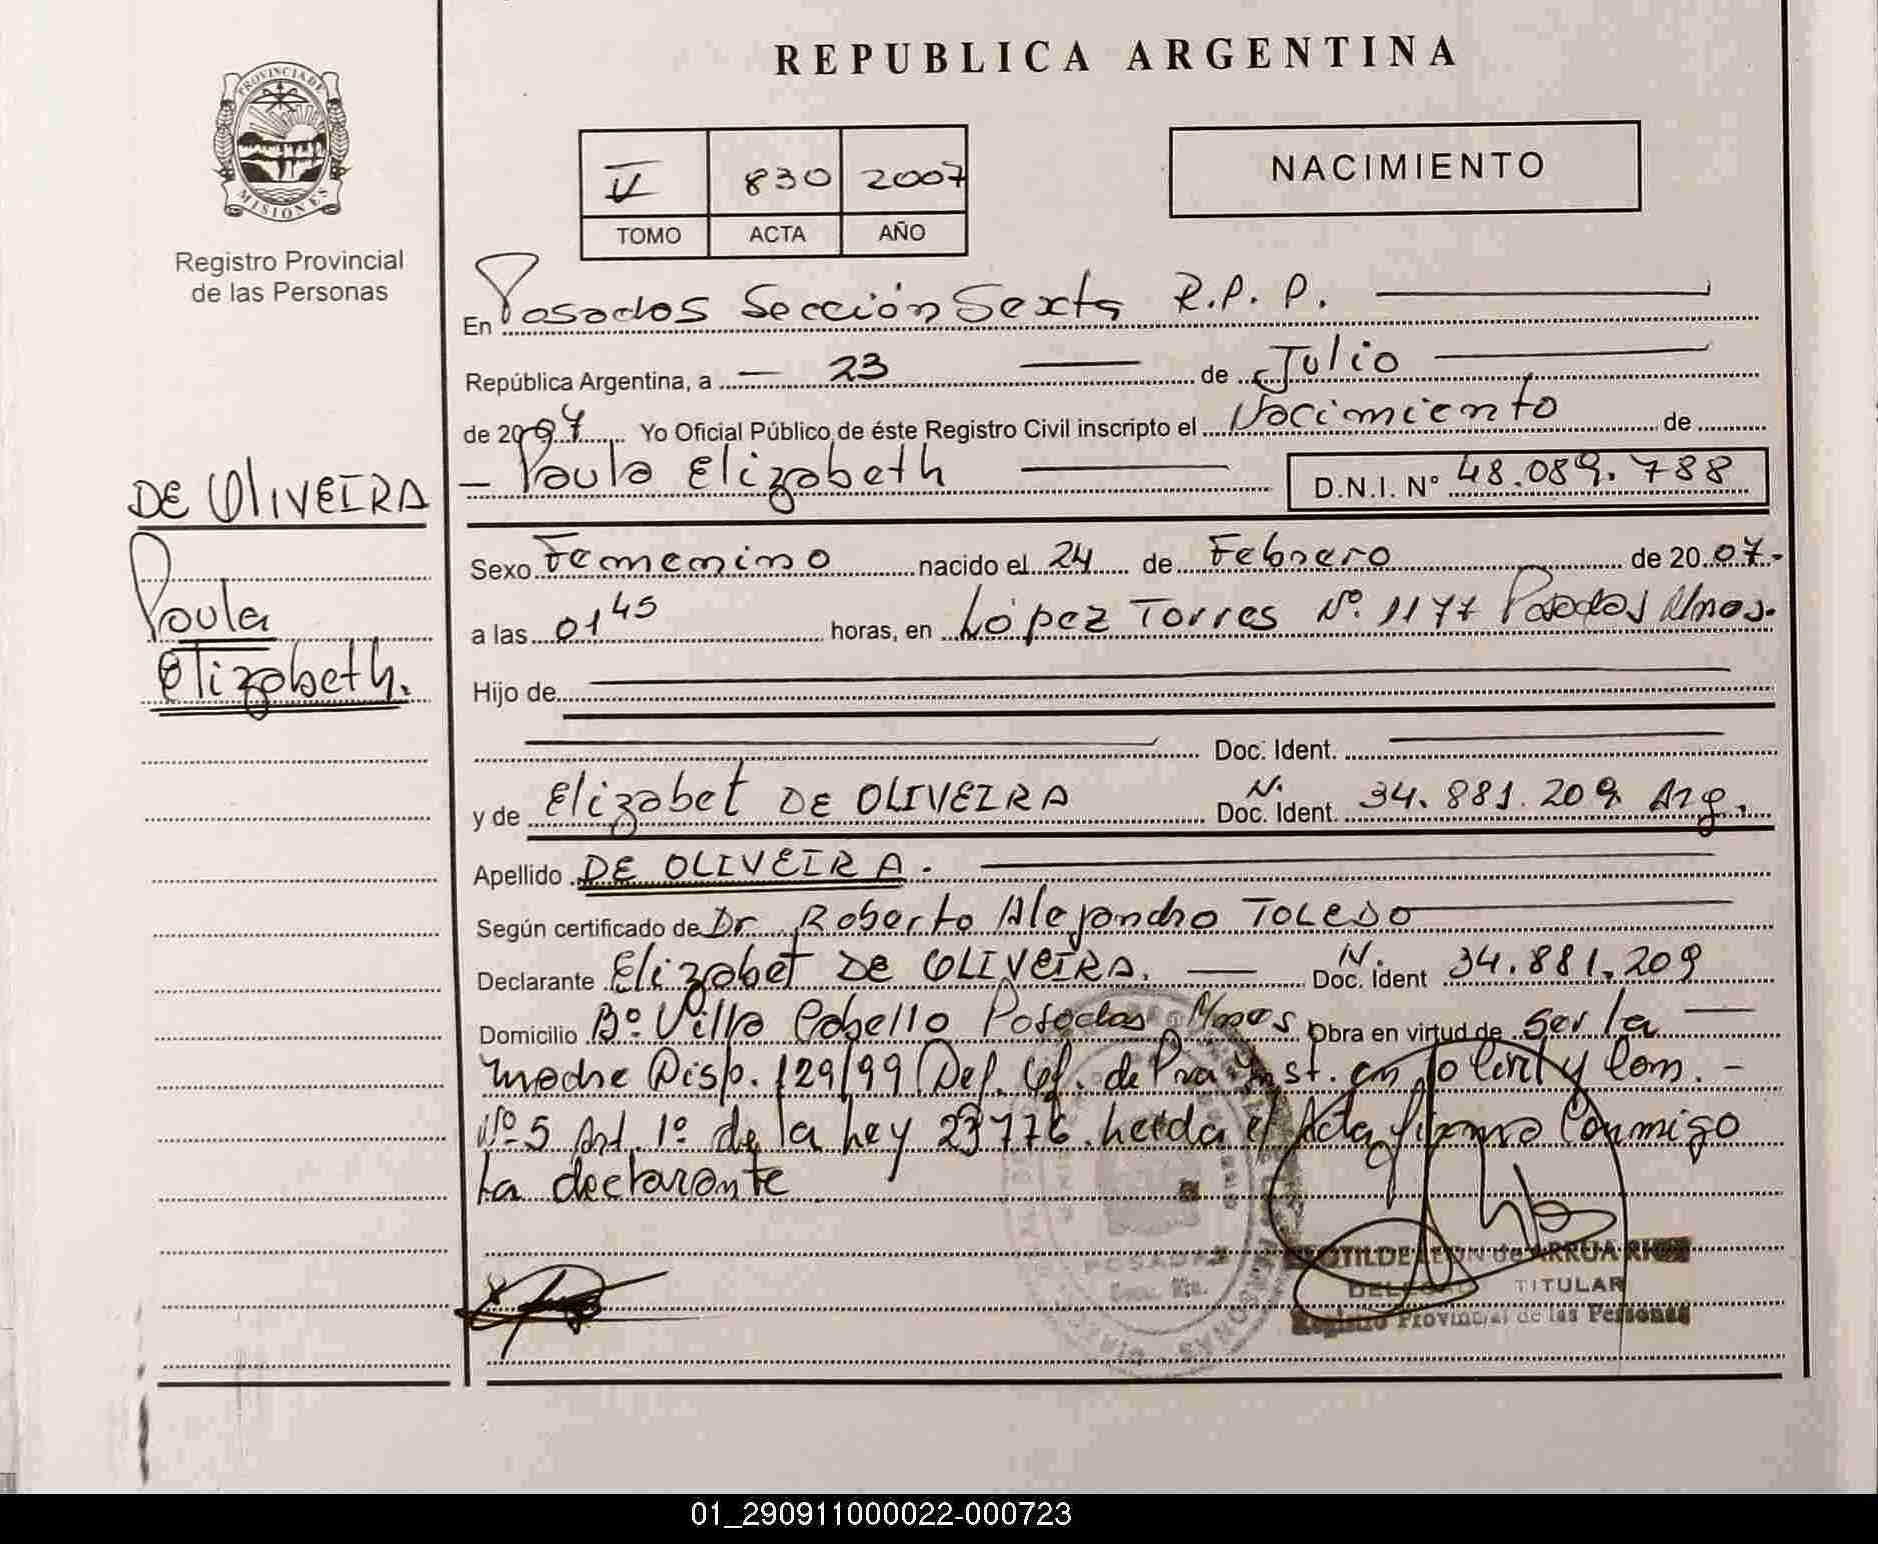 REPUBLICA ARGENTINA
PROVINCIA DE
MISIONES
Registro Provincial
de las Personas
II 830 2007
TOMO ACTA AÑO
NACIMIENTO
En Posadas Sección Sexta R.P.P.
República Argentina, a 23 de Julio
de 2007 Yo Oficial Público de éste Registro Civil inscripto el Nacimiento de
Paula Elizabeth D.N.I. Nº 48.089.788
DE OLIVEIRA
Paula
Elizabeth.
Sexo Femenino nacido el 24 de Febrero de 2007.-
a las 01 45 horas, en López Torres Nº 1177 Posadas Mnes.
Hijo de
Doc. Ident.
y de Elizabet DE OLIVEIRA Doc. Ident. N. 34.881.209 Arg.
Apellido DE OLIVEIRA.
Según certificado de Dr. Roberto Alejandro TOLEDO
Declarante Elizabet DE OLIVEIRA. Doc. Ident N. 34.881.209
Domicilio Bº Villa Cabello Posadas Mnes Obra en virtud de ser la
madre Disp. 129/99 Def. Of. de Pra Inst. en lo Civil y Com. -
Nº 5 Art. 1º de la Ley 23776. Leída el Acta firma Conmigo
La declarante
POSADAS
LEON de ARRUA
TITULAR
Registro Provincial de las Personas
01_290911000022-000723